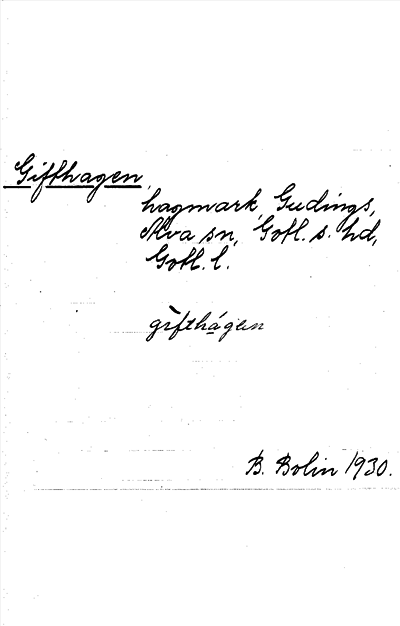 Gifthagen,
hagmark, Gudings,
Alva sn, Gotl. s. hd,
Gotl. l.
gìfthágen
B. Bolin 1930.